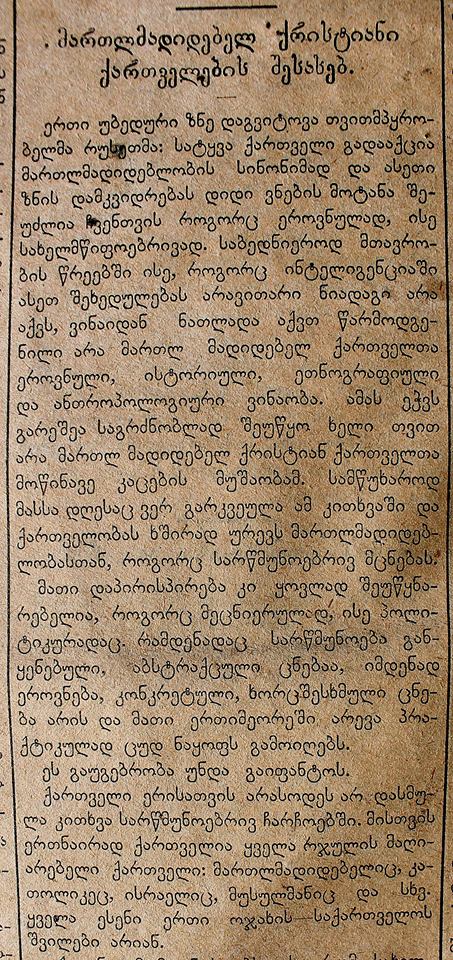 მართლმადიდებელ ქრისტიანი
ქართველების შესახებ.
ერთი უბედური ზნე დაგვიტოვა თვითმპყრო-
ბელმა რუსეთმა: სატყვა ქართველი გადააქცია
მართლმადიდებლობის სინონიმად და ასეთი
ზნის დამკვიდრებას დიდი ვნების მოტანა შე-
უძლია ჩვენთვის როგორც ეროვნულად, ისე
სახელმწიფოებრივად. საბედნიეროდ მთავრო-
ბის წრეებში ისე, როგორც ინტელიგენციაში
ასეთ შეხედულებას არავითარი ნიადაგი არა
აქვს, ვინაიდან ნათლადა აქვთ წარმოდგე-
ნილი არა მართლ მადიდებელ ქართველთა
ეროვნული, ისტორიული, ეთნოგრაფიული
და ანთროპოლოგიური ვინაობა. ამას ეჭვს
გარეშეა საგრძნობლად შეუწყო ხელი თვით
არა მართლ მადიდებელ ქრისტიან ქართველთა
მოწინავე კაცების მუშაობამ. სამწუხაროდ
მასსა დღესაც ვერ გარკვეულა ამ კითხვაში და
ქართველობას ხშირად ურევს მართლმადიდებ-
ლობასთან, როგორც სარწმუნოებრივ მცნებას.
მათი დაპირისპირება კი ყოვლად შეუწყნა-
რებელია, როგორც მეცნიერულად, ისე პოლი-
ტიკურადაც. რამდენადაც სარწმუნოება გან-
ყენებული, აბსტრაქცული ცნებაა, იმდენად
ეროვნება, კონკრეტული, ხორცშესხმული ცნე-
ბა არის და მათი ერთიმეორეში არევა პრა-
ქტიკულად ცუდ ნაყოფს გამოიღებს.
ეს გაუგებრობა უნდა გაიფანტოს.
ქართველი ერისათვის არასოდეს არ დასმუ-
ლა კითხვა სარწმუნოებრივ ჩარჩოებში. მისთვის
ერთნაირად ქართველია ყველა რჯულის მაღი-
არებელი ქართველი: მართლმადიდებელიც, კა-
თოლიკეც, ისრაელიც, მუსულმანიც და სხვ.
ყველა ესენი ერთი ოჯახის—საქართველოს
შვილები არიან.